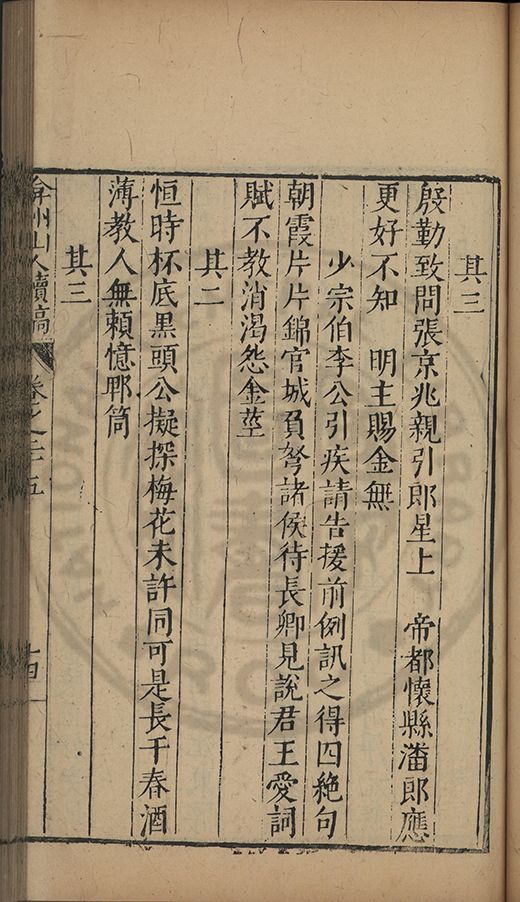 其三
殷勤致問張京兆親引郎星上　帝都懷縣潘郎應
更好不知　明主賜金無
少宗伯李公引疾請告援前例訊之得四絶句
朝霞片片錦官城負弩諸侯待長卿見說君王愛詞
賦不教消渴怨金莖
其二
恒時杯底黑頭公擬探梅花未許同可是長干春酒
薄教人無頼憶郫筒
其三
弇州山人續稿　卷之二十五　十四